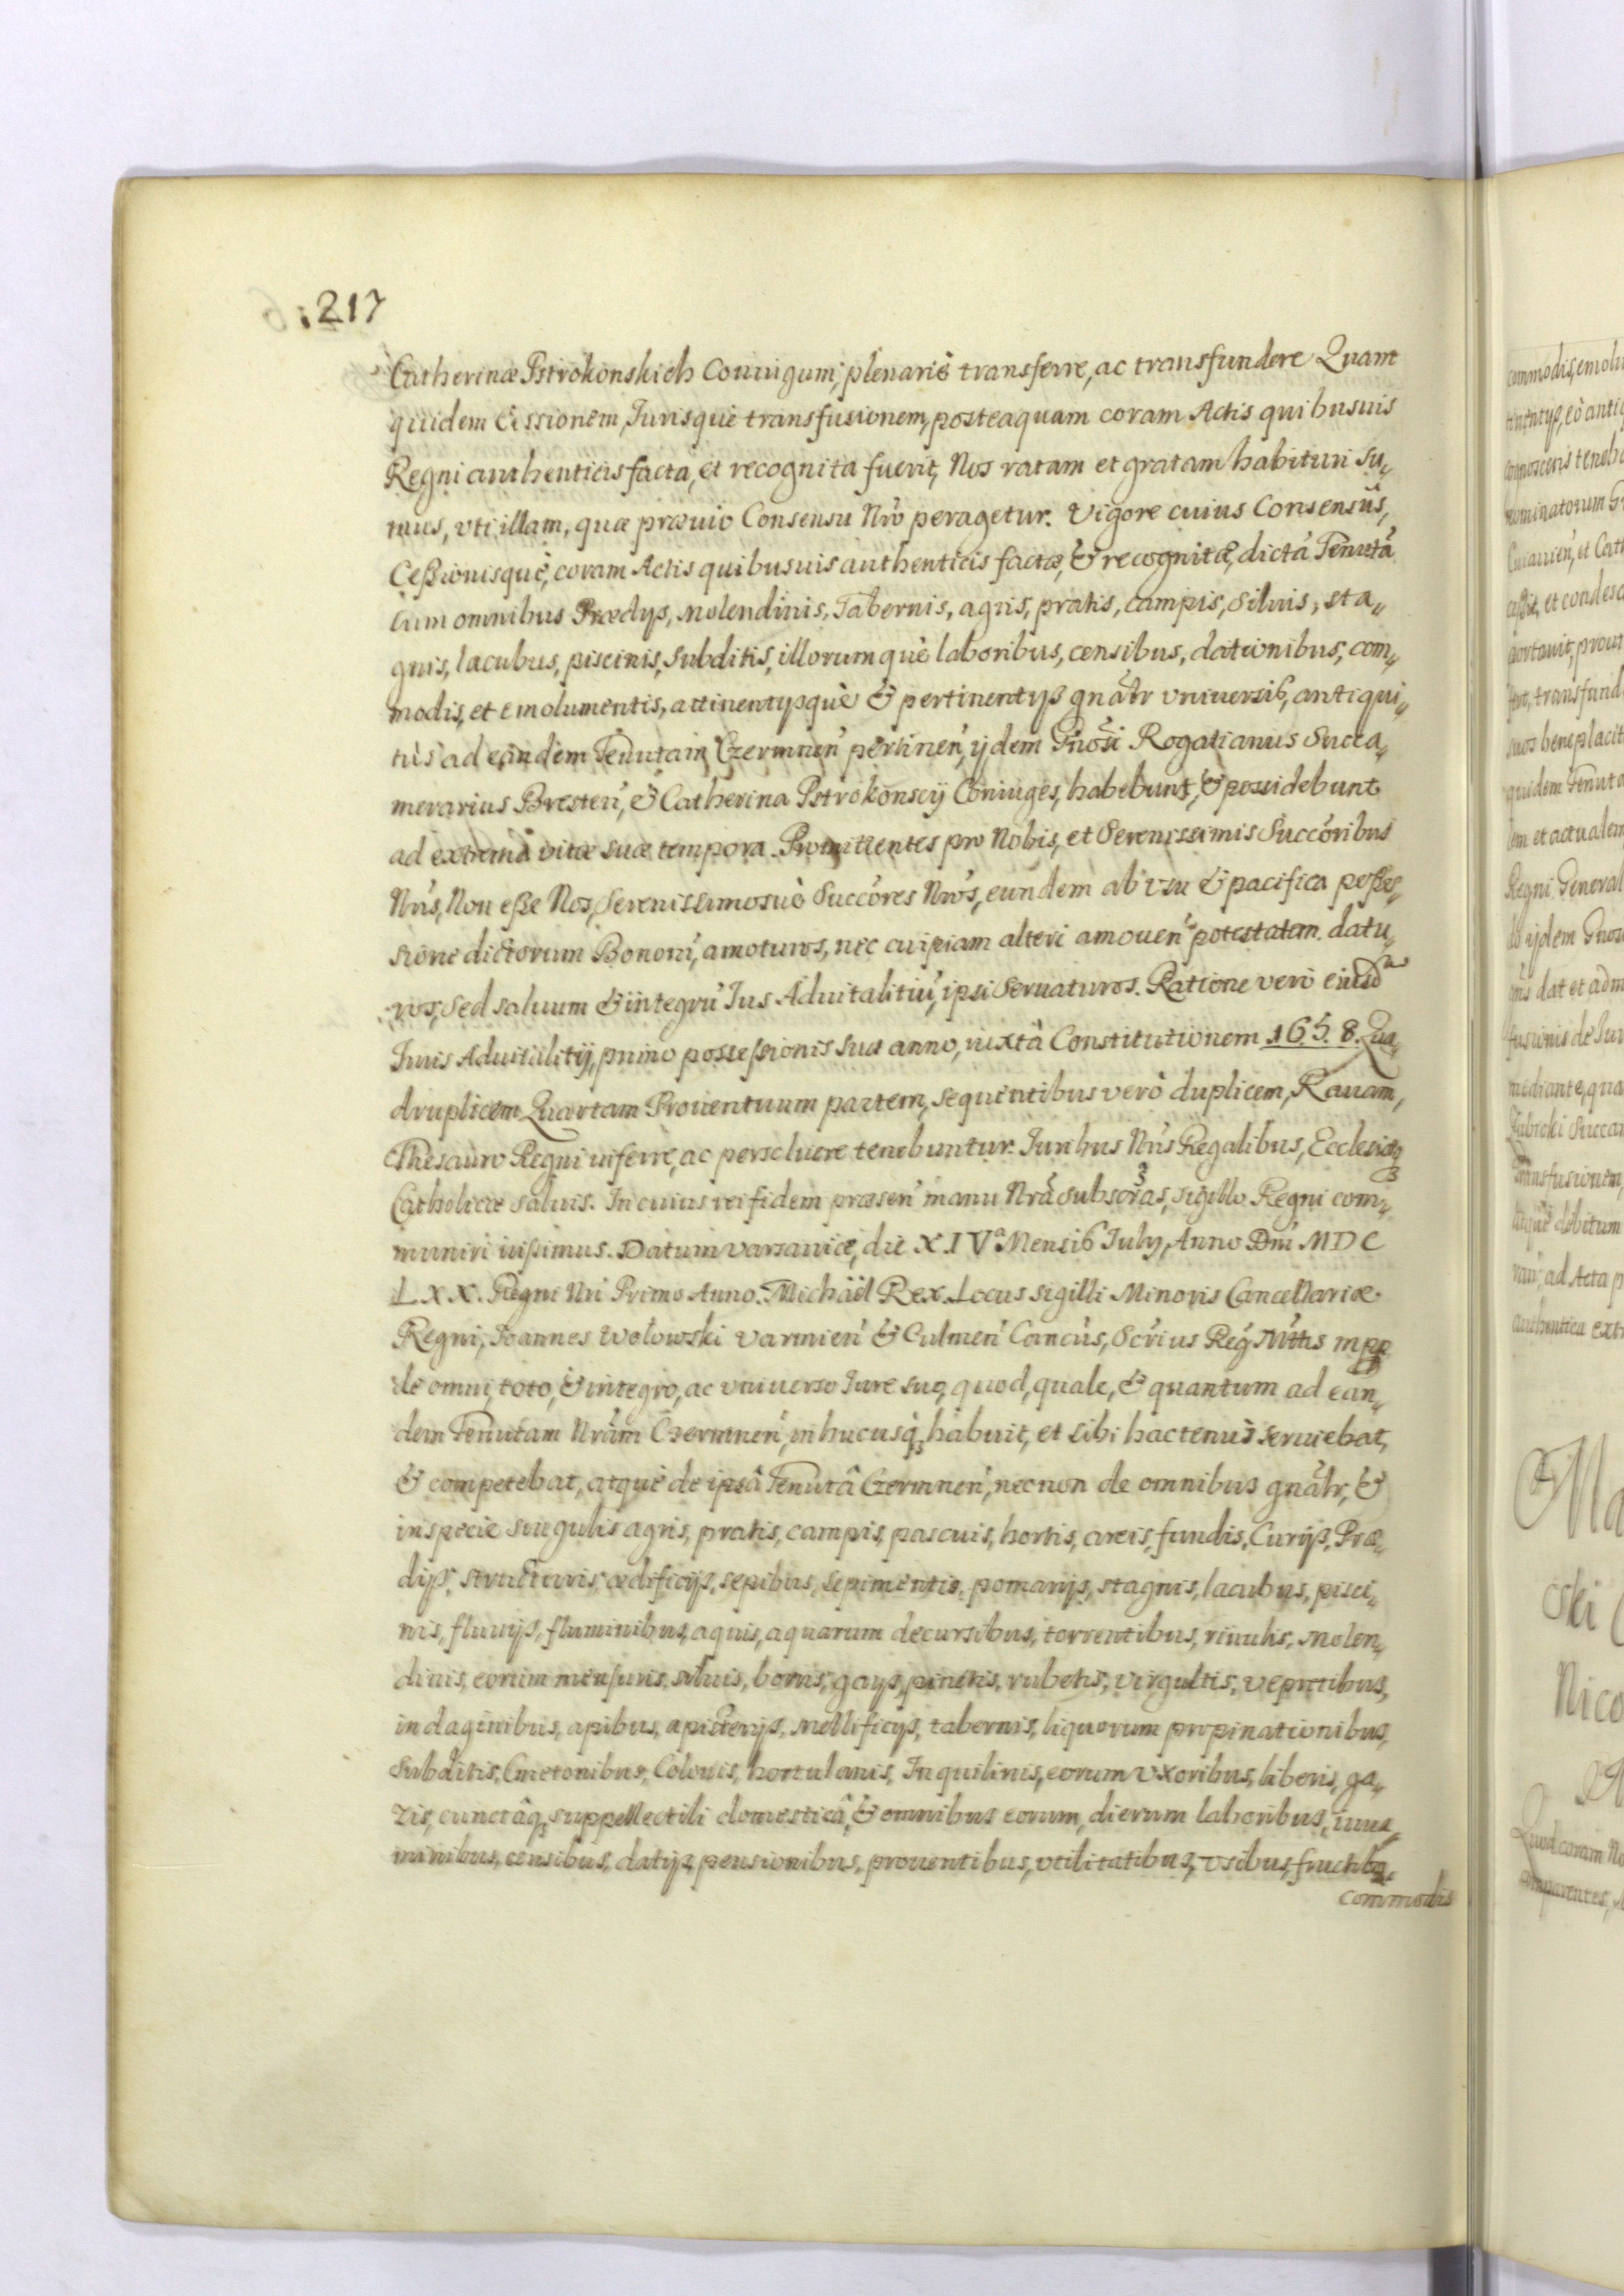 217
Catherinæ Pstrokonskich Coniugum, plenariè transferre, ac transfundere Quam
quidem Cessionem, Jurisquè transfusionem, posteaquam coram Actis quibusuis
Regni authenticis facta, et recognita fuerit, Nos ratam et gratam habituri su„
mus, vti illam, quæ præuio Consensu Nr̃o peragetur. Vigore cuius Consensûs,
Ceßionisquè, coram Actis quibusuis authenticis factæ, & recognitæ, dictâ Tenutâ
cum omnibus Prædys, molendinis, Tabernis, agris, pratis, campis, Siluis, sta„
gnis, lacubus, piscinis, Subditis, illorumquè laboribus, censibus, dationibus, com„
modis, et emolumentis, attinentysquè & pertinentys gnãlr vniuersis, antiqui„
tùs ad eandem Tenutam Czermnen̓ pertinen̓, ijdem Gñosi Rogatianus Succa„
merarius Bresten̓, & Catherina Pstrokonscij Coniuges, habebunt, & possidebunt
ad extrema vitæ suæ tempora. Promittentes pro Nobis, et Serenissimis Succoribus
Nr̃is, Non eße Nos, Serenissimosuè Succores Nr̃os, eundem ab vsu & pacifica poßes„
sione dictorum Bonor̃, amoturos, nec cuipiam alteri amouen̓ potestatem datu„
ros, Sed saluum & integrũ Ius Aduitalitiũ, ipsi Seruaturos. Ratione verò eiusd
Iuris Aduitalitij, primo possessionis suæ anno, iuxtà Constitutionem 1658. Qua„
druplicem Quartam Prouentuum partem, sequentibus verò duplicem, Rauam,
Thesauro Regni inferre, ac persoluere tenebuntur. Iuribus Nr̃is Regalibus, Ecclesiæq3
Catholicæ saluis. In cuius rei fidem præsen̓ manu Nr̃a Subscr̃as, sigillo Regni com„
muniri iußimus. Datum varsauiæ, die XIVa Mensis July, Anno Dn̓i MDC
LXX. Regni Nr̃i Primo Anno. Michaël Rex. Locus sigilli Minoris Cancellariæ
Regni, Joannes Wołowski varmien̓ & Culmen̓ Cancũs, Scr̃ius Reg̃ Mtis mpp
de omni, toto, & integro, ac vniuerso Jure suo, quod, quale, & quantum ad ean„
dem Tenutam Nr̃am Czermnen̓, in hucusq3 habuit, et sibi hactenus seruiebat,
& competebat, atquè de ipsâ Tenutâ Czermnen̓, necnon de omnibus gnãlr, &
in specie singulis agris, pratis, campis, pascuis, hortis, areis, fundis, Curijs, Præ„
dijs, structuris, ædificijs, sepibus, sepimentis, pomarijs, stagnis, lacubus, pisci„
nis, fluuijs, fluminibus, aquis, aquarum decursibus, torrentibus, riuulis, Molen„
dinis, eorum mensuris, siluis, borris, gays, pinetis, rubetis, virgultis, vepretibus,
indaginibus, apibus, apisterijs, mellificijs, tabernis, liquorum propinationibus,
Subditis, Cmetonibus, Colonis, hortulanis, Inquilinis, eorum vxoribus, liberis, ga„
zis, cunctâq3 suppellectili domesticâ, & omnibus eorum, dierum laboribus, iuua„
minibus, censibus, datijs, pensionibus, prouentibus, vtilitatibus, vsibus, fructibq
commodis